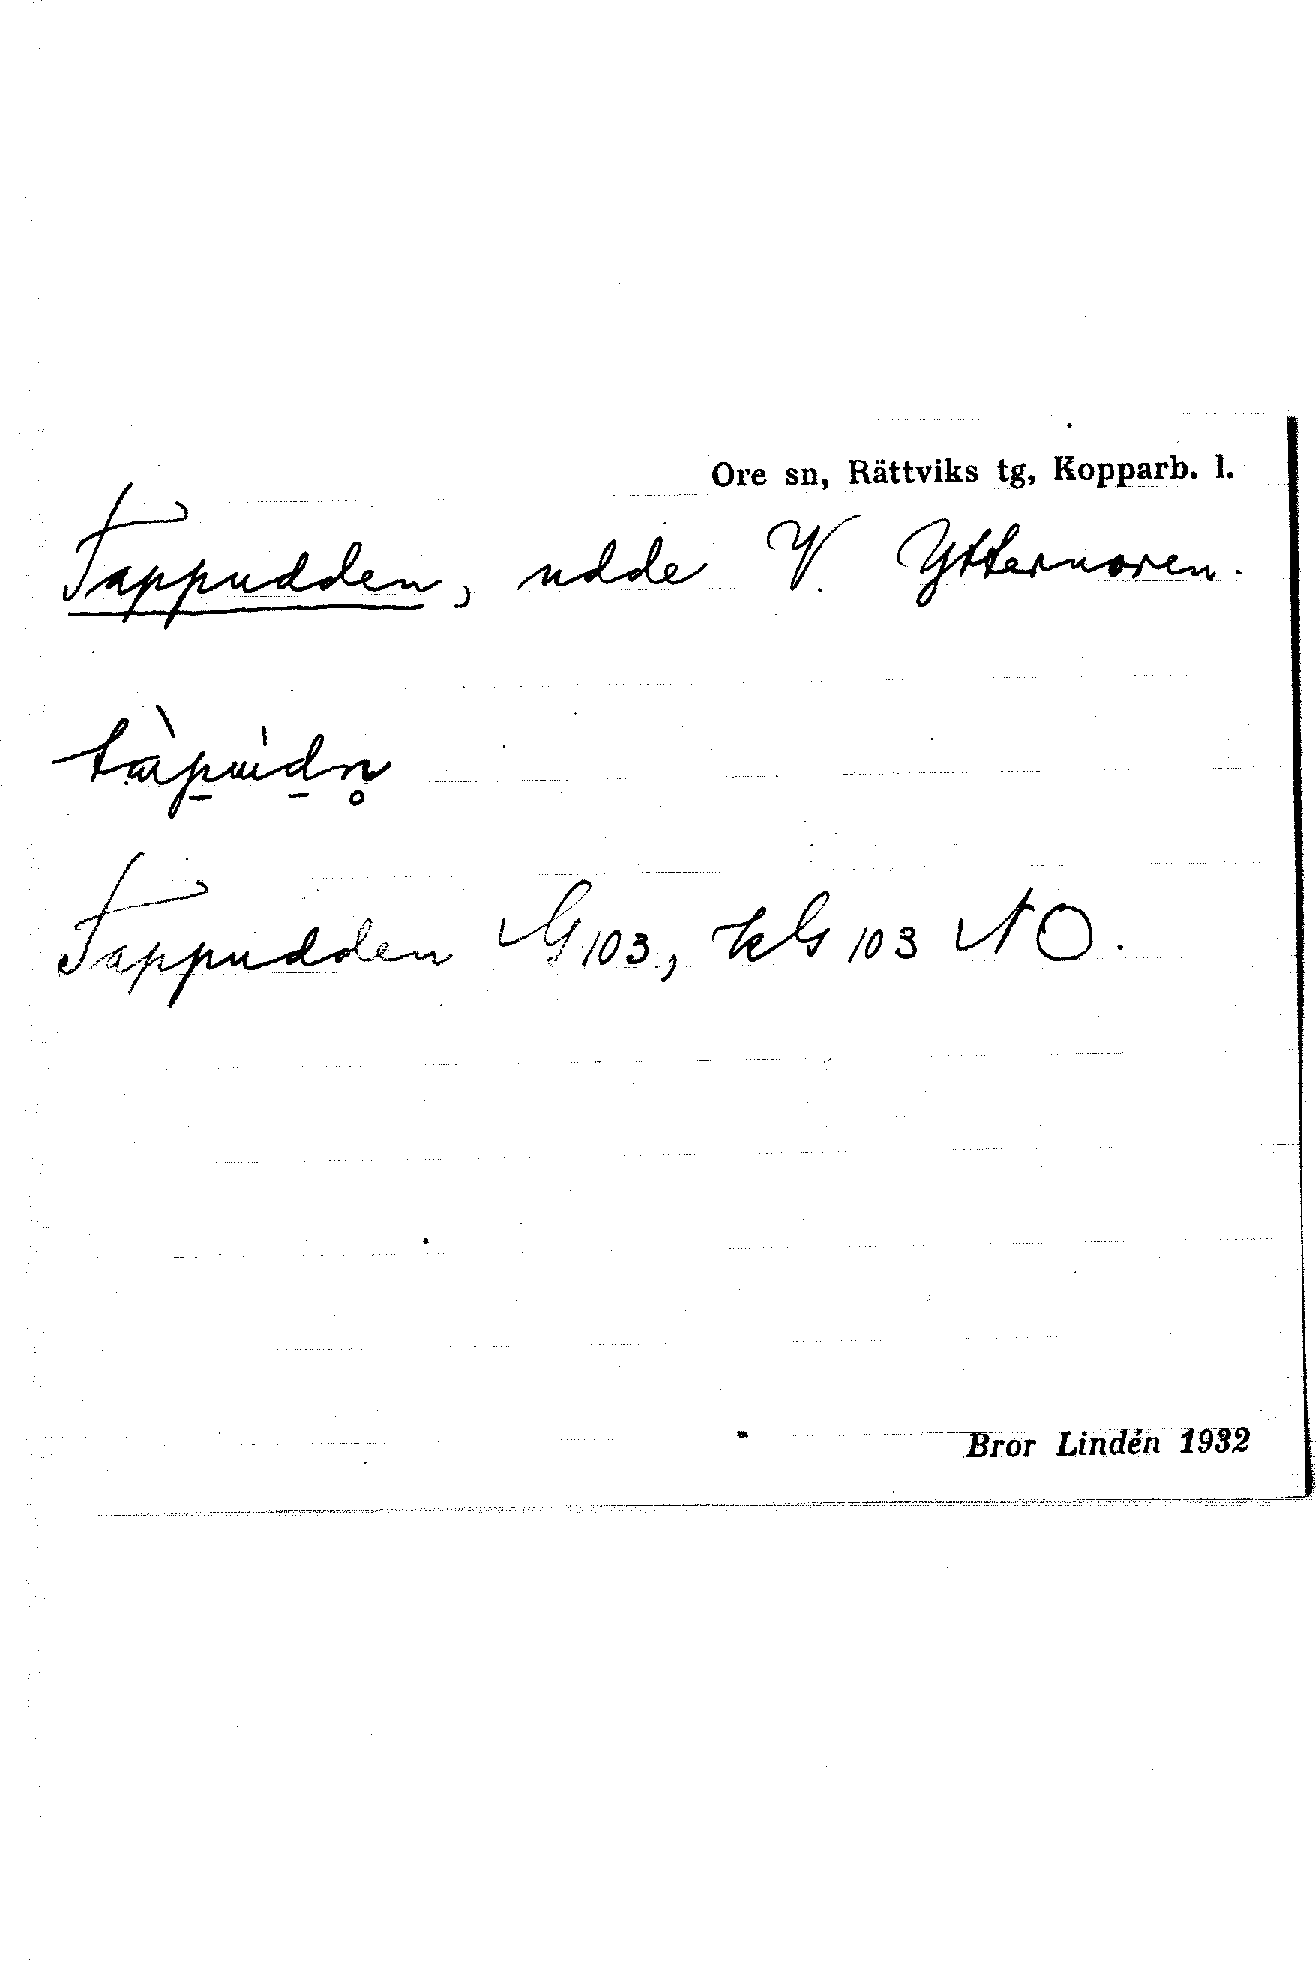 Ore sn, Rättviks tg, Kopparb. l.
Tappudden, udde V. Ytternoren.
Tappudden G 103, kG 103 NO.
Bror Lindén 1932